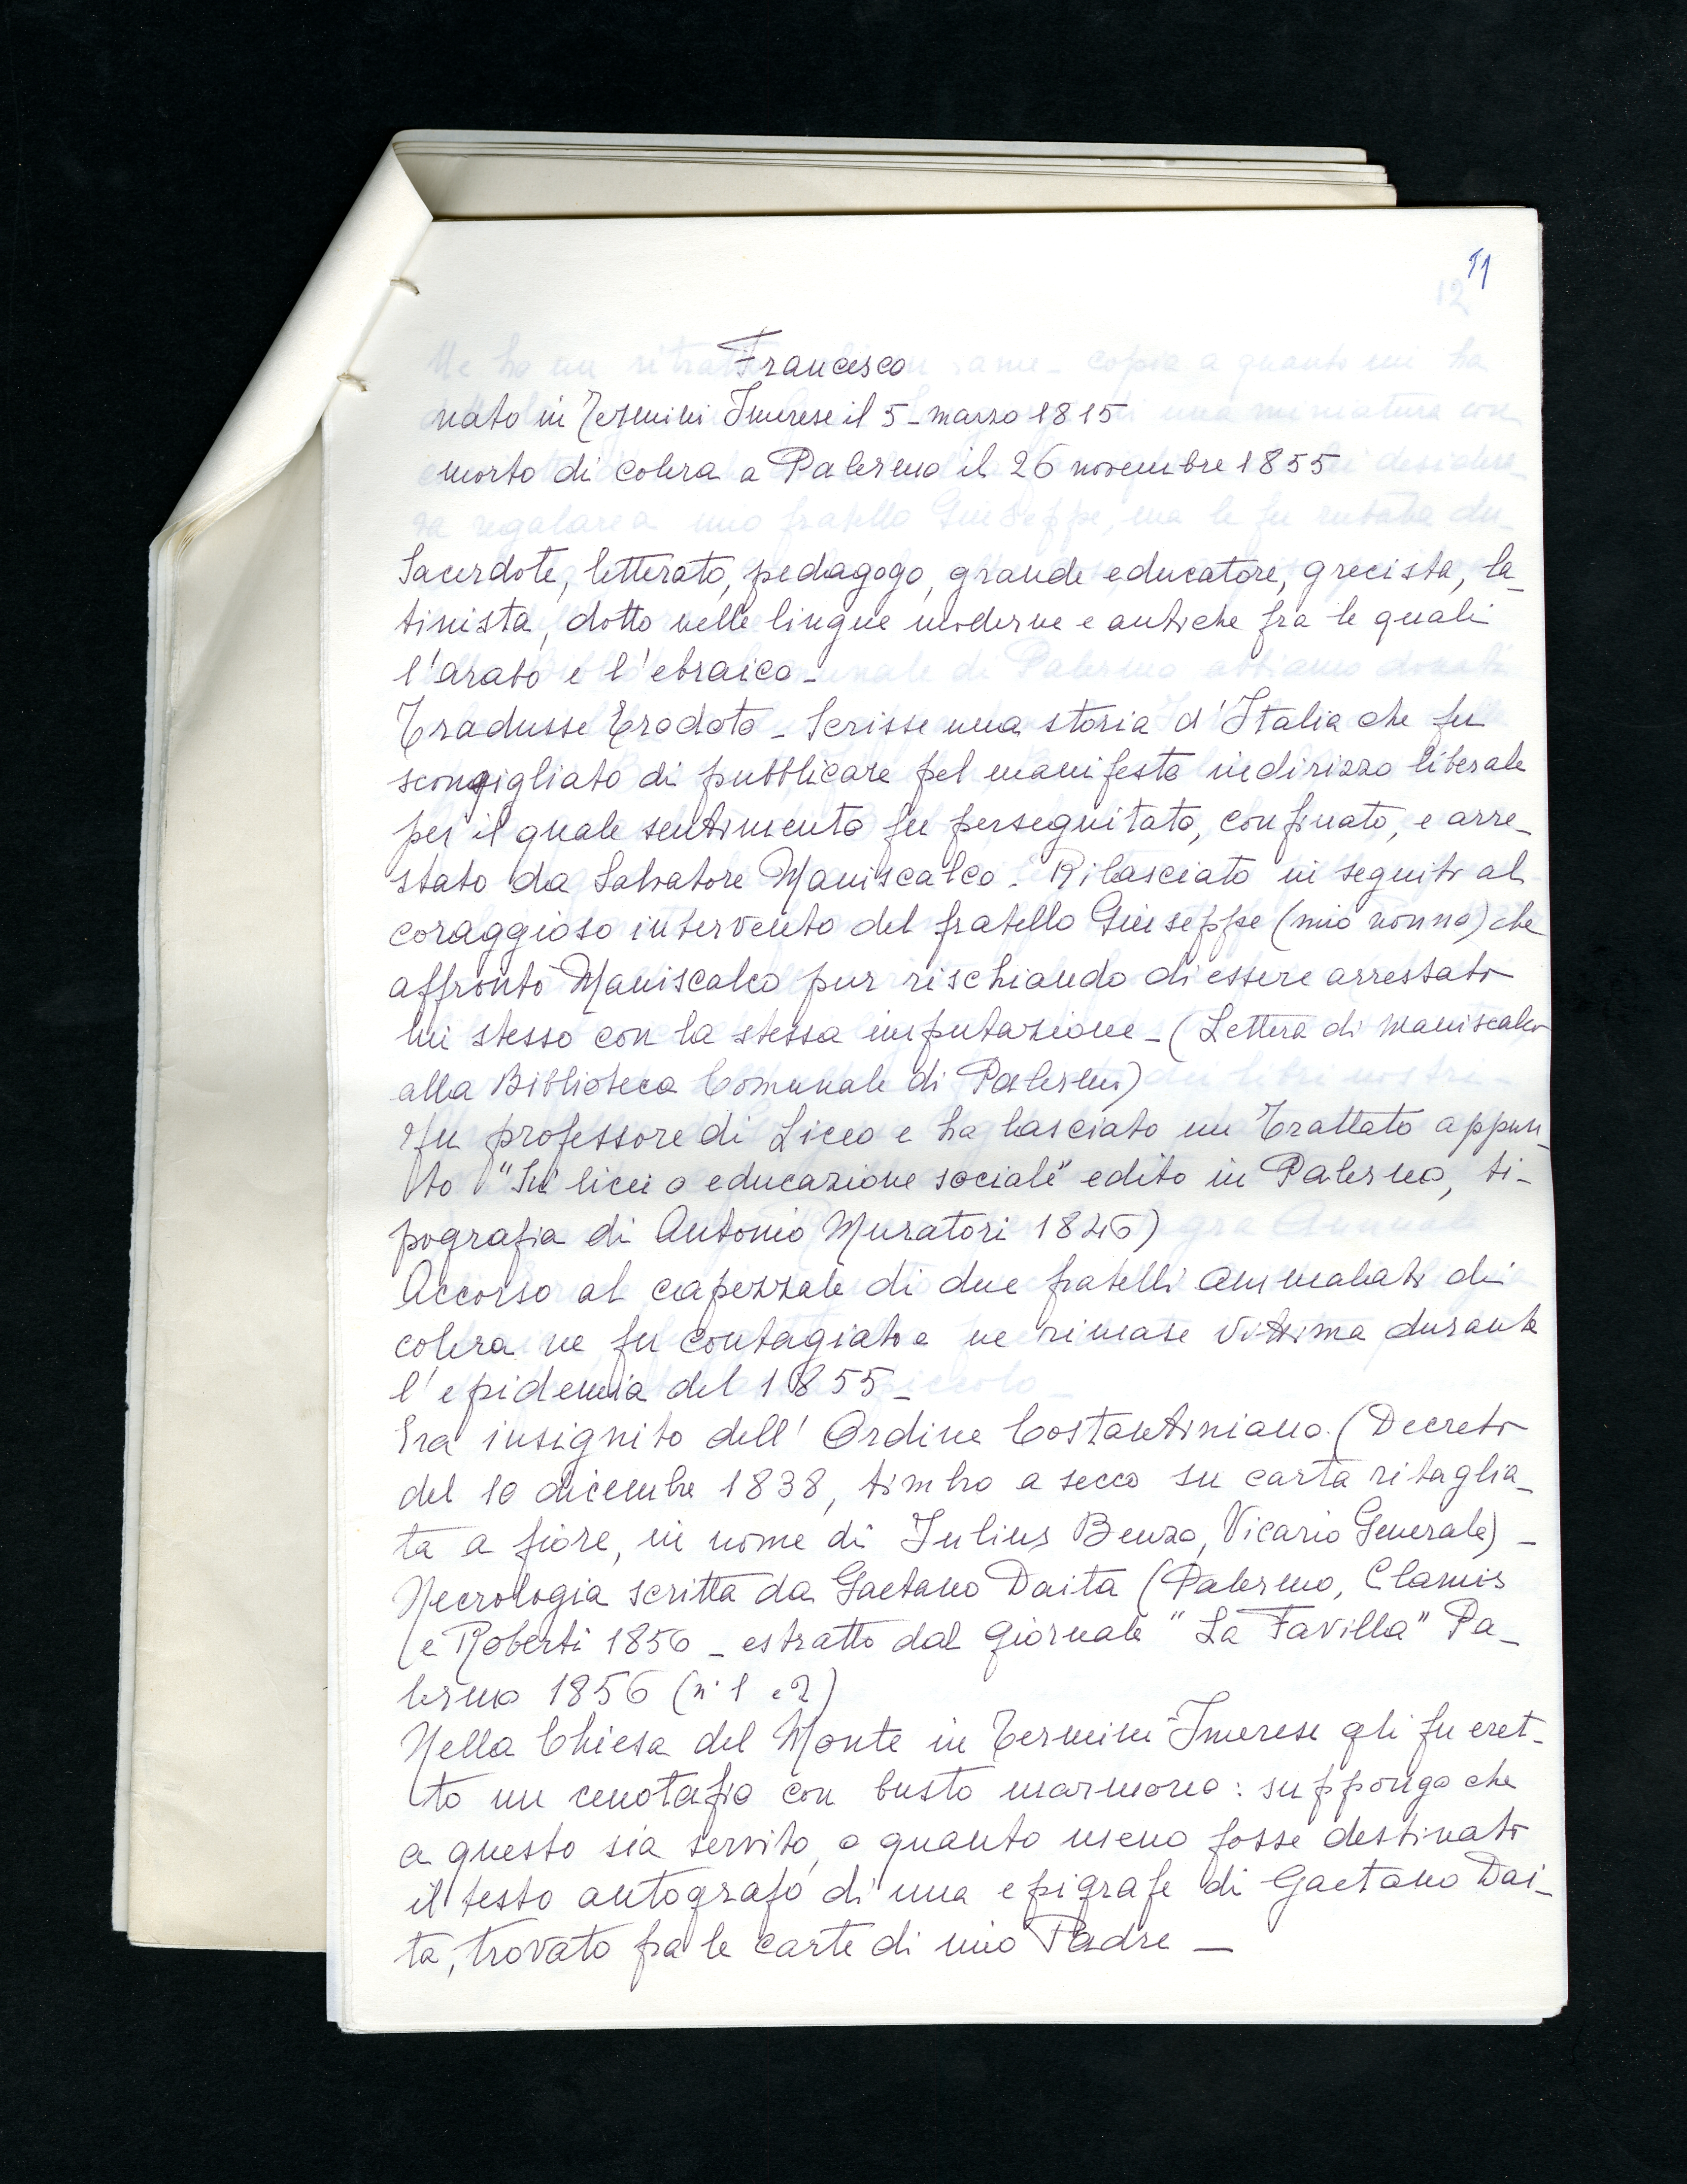 11
12
Francesco
nato in Termini Imerese il 5 - marzo 1815
morto di colera a Palermo il 26 novembre 1855
Sacerdote, letterato, pedagogo, grande educatore, grecista, la-
tinista, dotto nelle lingue moderne e antiche fra le quali
l'arabo e l'ebraico -
Tradusse Erodoto - Scrisse una storia d'Italia che fu
sconsigliato di pubblicare pel manifesto indirizzo liberale
per il quale sentimento fu perseguitato, confinato, e arre-
stato da Salvatore Maniscalco. Rilasciato in seguito al
coraggioso intervento del fratello Giuseppe (mio nonno) che
affrontò Maniscalco pur rischiando di essere arrestato
lui stesso con la stessa imputazione - (Lettera di Maniscalco
alla Biblioteca Comunale di Palermo)
Fu professore di Liceo e ha lasciato un Trattato appun-
to "Sui licei o educazione sociale" edito in Palermo, ti-
pografia di Antonio Muratori 1846)
Accorso al capezzale di due fratelli ammalati di
colera ne fu contagiato e ne rimase vittima durante
l'epidemia del 1855 -
Era insignito dell'Ordine Costantiniano. (Decreto
del 10 dicembre 1838, timbro a secco su carta ritaglia-
ta a fiore, in nome di Julius Benzo, Vicario Generale) -
Necrologia scritta da Gaetano Daita (Palermo, Clamis
e Roberti 1856 - estratto dal giornale "La Favilla" Pa-
lermo 1856 (n° 1 e 2)
Nella Chiesa del Monte in Termini Imerese gli fu eret-
to un cenotafio con busto marmoreo: suppongo che
a questo sia servito, o quanto meno fosse destinato
il testo autografo di una epigrafe di Gaetano Dai-
ta, trovato fra le carte di mio Padre -